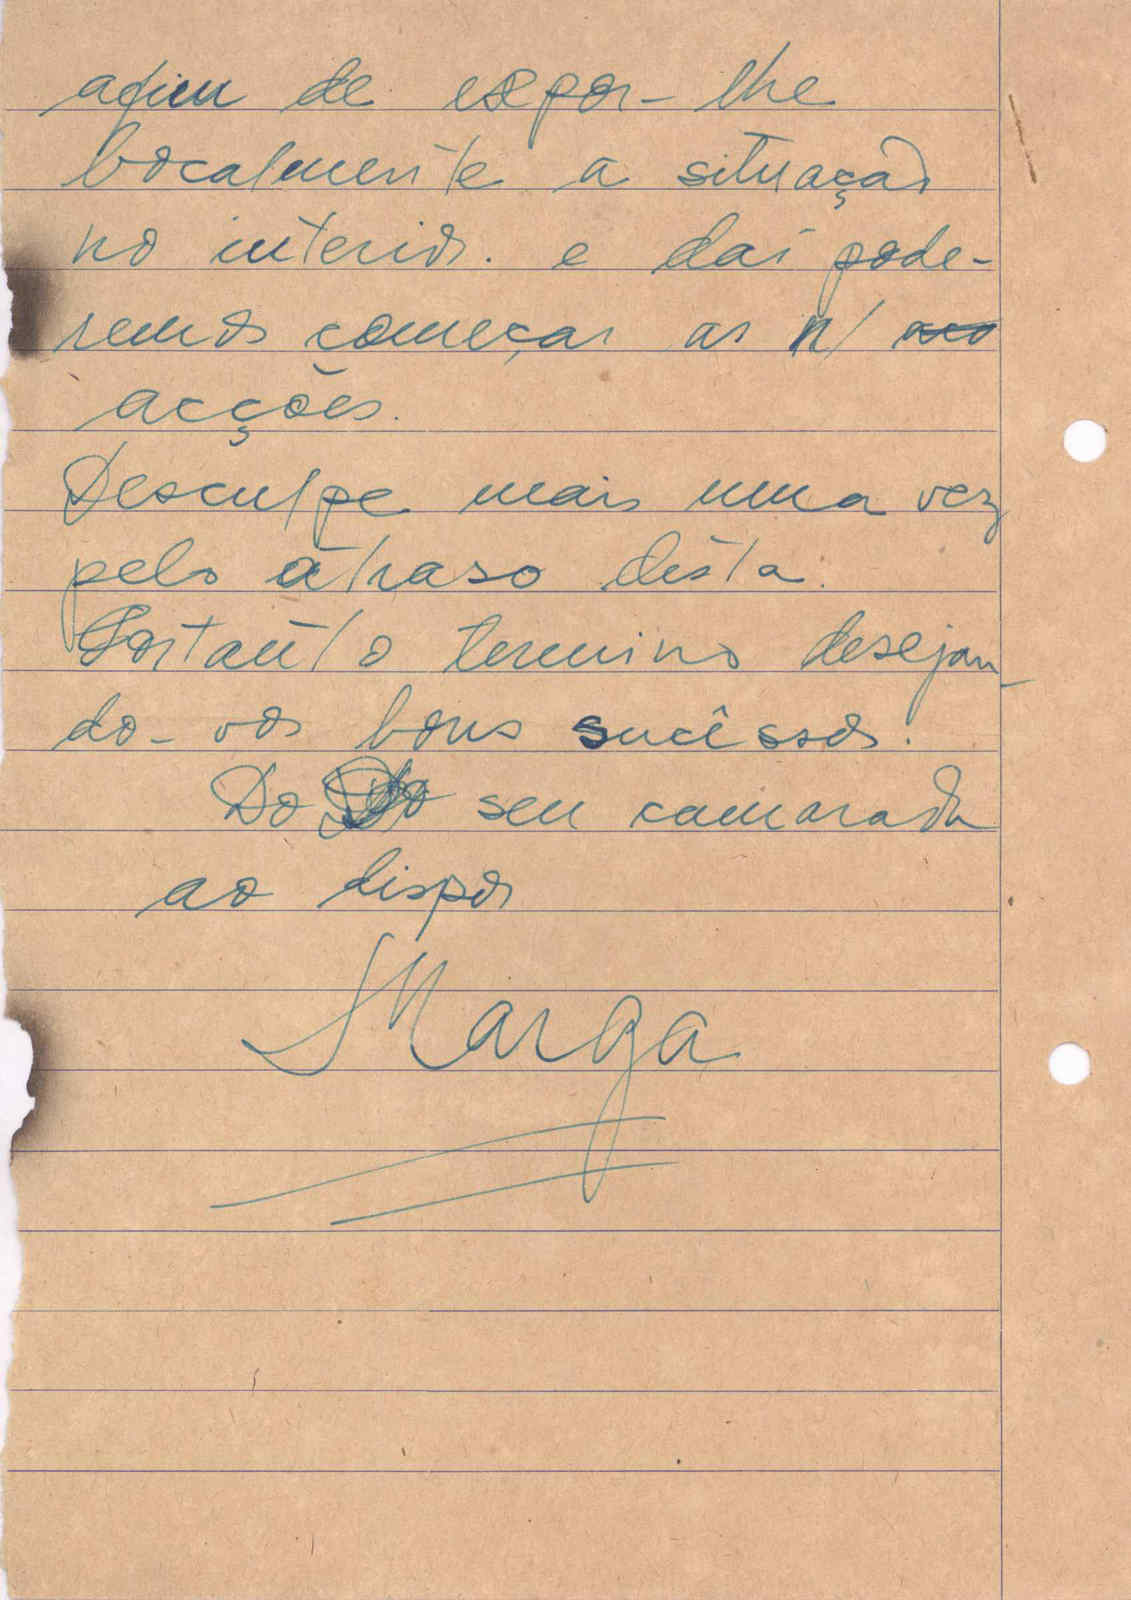 afim de expor-lhe
bocalmente a situação
no interior. e daí pode-
remos começar as n/
acções.
Desculpe mais uma vez
pelo atraso desta.
Portanto termino desejan-
do-vos bons sucêssos.
Do seu camarada
ao dispor
Marga